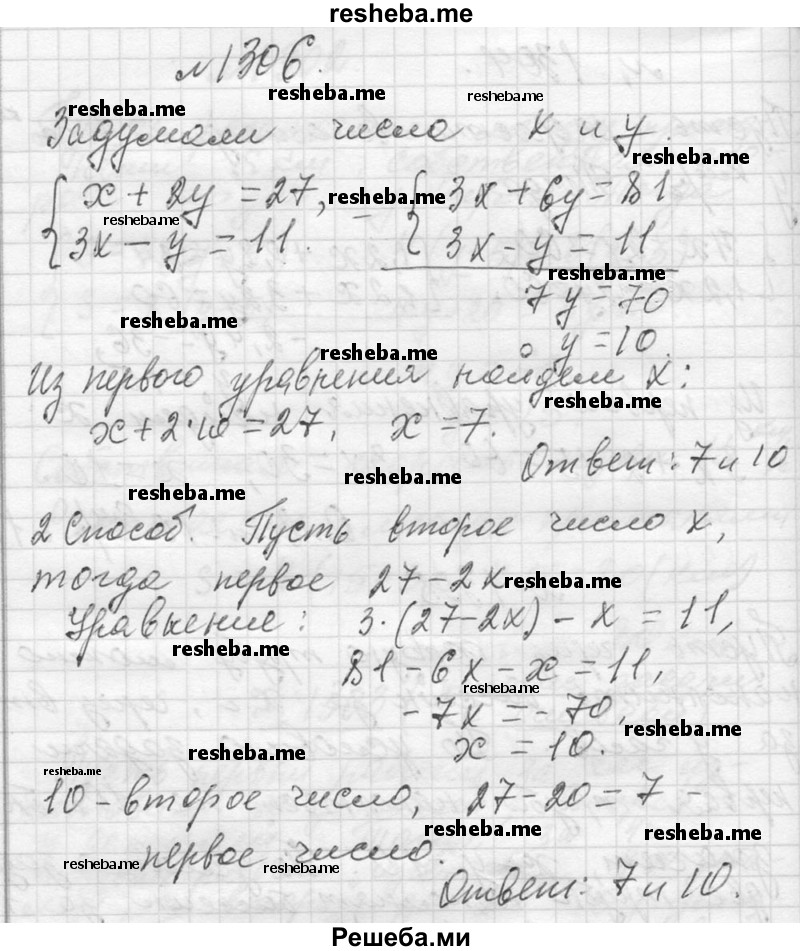 resheba.me
№1306.
resheba.me resheba.me resheba.me
Задумали числа x и y.
resheba.me
{ x + 2y = 27, resheba.me – { 3x + 6y = 81
resheba.me
3x – y = 11. 3x – y = 11
resheba.me
7y = 70
resheba.me
y = 10.
resheba.me
Из первого уравнения найдем x:
resheba.me
x + 2·10 = 27, x = 7.
Ответ: 7 и 10
resheba.me
resheba.me
2 Способ. Пусть второе число x,
тогда первое 27 – 2x. resheba.me
Уравнение: 3·(27–2x) – x = 11,
resheba.me
81 – 6x – x = 11,
resheba.me
– 7x = – 70,
resheba.me
x = 10.
resheba.me
resheba.me
10 – второе число, 27 – 20 = 7 –
resheba.me resheba.me
resheba.me первое число. resheba.me
Ответ: 7 и 10.
Решеба.ми